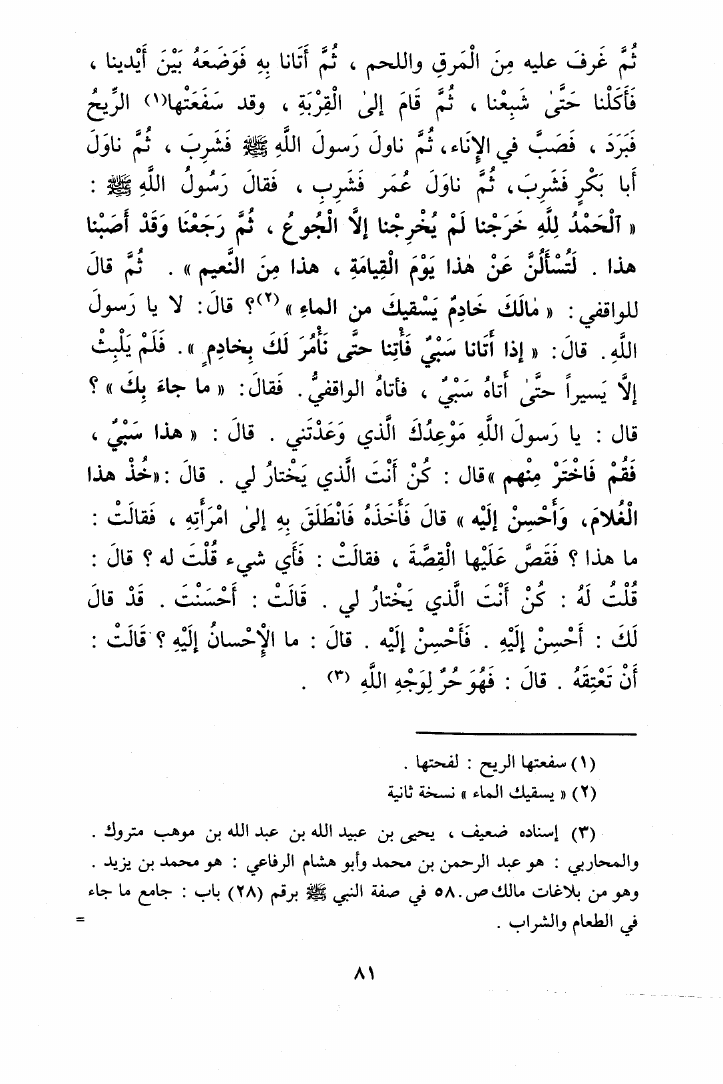 ثُمَّ غَرفَ عليه مِنَ الْمَرقِ واللحم ، ثُمَّ أَتَانا بِهِ فَوَضَعَهُ بَيْنَ أَيْدينا ،
فَأَكَلْنا حَتَّىٰ شَبِعْنا ، ثُمَّ قَامَ إلىٰ الْقِرْبَةِ ، وقد سَفَعَتْها(١) الرِّيحُ
فَبَرَدَ ، فَصَبَّ في الإِنَاء، ثُمَّ ناولَ رَسولَ اللَّهِ ﷺ فَشَرِبَ ، ثُمَّ ناوَلَ
أَبا بَكْرٍ فَشَرِبَ، ثُمَّ ناوَلَ عُمَر فَشَرِب ، فَقالَ رَسُولُ اللَّهِ ﷺ :
« اَلْحَمْدُ لِلَّهِ خَرَجْنا لَمْ يُخْرِجْنا إلاَّ الْجُوعُ ، ثُمَّ رَجَعْنَا وَقَدْ أَصَبْنا
هذا . لَتُسْأَلُنَّ عَنْ هٰذا يَوْمَ الْقِيامَةِ ، هذا مِنَ النَّعيم » . ثُمَّ قالَ
للواقفي : « مٰالَكَ خَادِمٌ يَسْقيكَ من الماءِ »(٢)؟ قالَ: لا يا رَسولَ
اللَّهِ. قالَ: « إذا أَتَانا سَبْيٌ فَأْتِنا حتَّى نَأْمُرَ لَكَ بِخادِمٍ ». فَلَمْ يَلْبِثْ
إلاَّ يَسيراً حتَّىٰ أَتاهُ سَبْيٌ ، فأتاهُ الواقفيُّ. فَقالَ: « ما جاءَ بِكَ » ؟
قال : يا رَسولَ اللَّهِ مَوْعِدُكَ الَّذي وَعَدْتَني . قالَ : « هذا سَبْيٌ ،
فَقُمْ فَاخْتَرْ مِنْهم »قال : كُنْ أَنْتَ الَّذي يَخْتارُ لي . قالَ :«خُذْ هذا
الْغُلامَ، وَأَحْسِنْ إلَيْه » قالَ فَأَخَذَهُ فَانْطَلَقَ بِهِ إلىٰ امْرَأَتِهِ ، فَقالَتْ :
ما هذا ؟ فَقَصَّ عَلَيْها الْقِصَّةَ ، فقالَتْ : فَأَي شيء قُلْتَ له ؟ قالَ :
قُلْتُ لَهُ : كُنْ أَنْتَ الَّذي يَخْتارُ لي . قَالَتْ : أَحْسَنْتَ . قَدْ قالَ
لَكَ : أَحْسِنْ إلَيْهِ . فَأَحْسِنْ إلَيْه . قالَ : ما الْإحْسانُ إلَيْهِ ؟ قالَتْ :
أَنْ تَعْتِقَهُ . قالَ : فَهُوَ حُرٌ لِوَجْهِ اللَّهِ (٣) .
(١) سفعتها الريح : لفحتها .
(٢) « يسقيك الماء » نسخة ثانية
(٣) إسناده ضعيف ، يحيى بن عبيد الله بن عبد الله بن موهب متروك .
والمحاربي : هو عبد الرحمن بن محمد وأبو هشام الرفاعي : هو محمد بن يزيد .
وهو من بلاغات مالك ص.٥٨ في صفة النبي ﷺ برقم (٢٨) باب : جامع ما جاء
في الطعام والشراب .
=
٨١